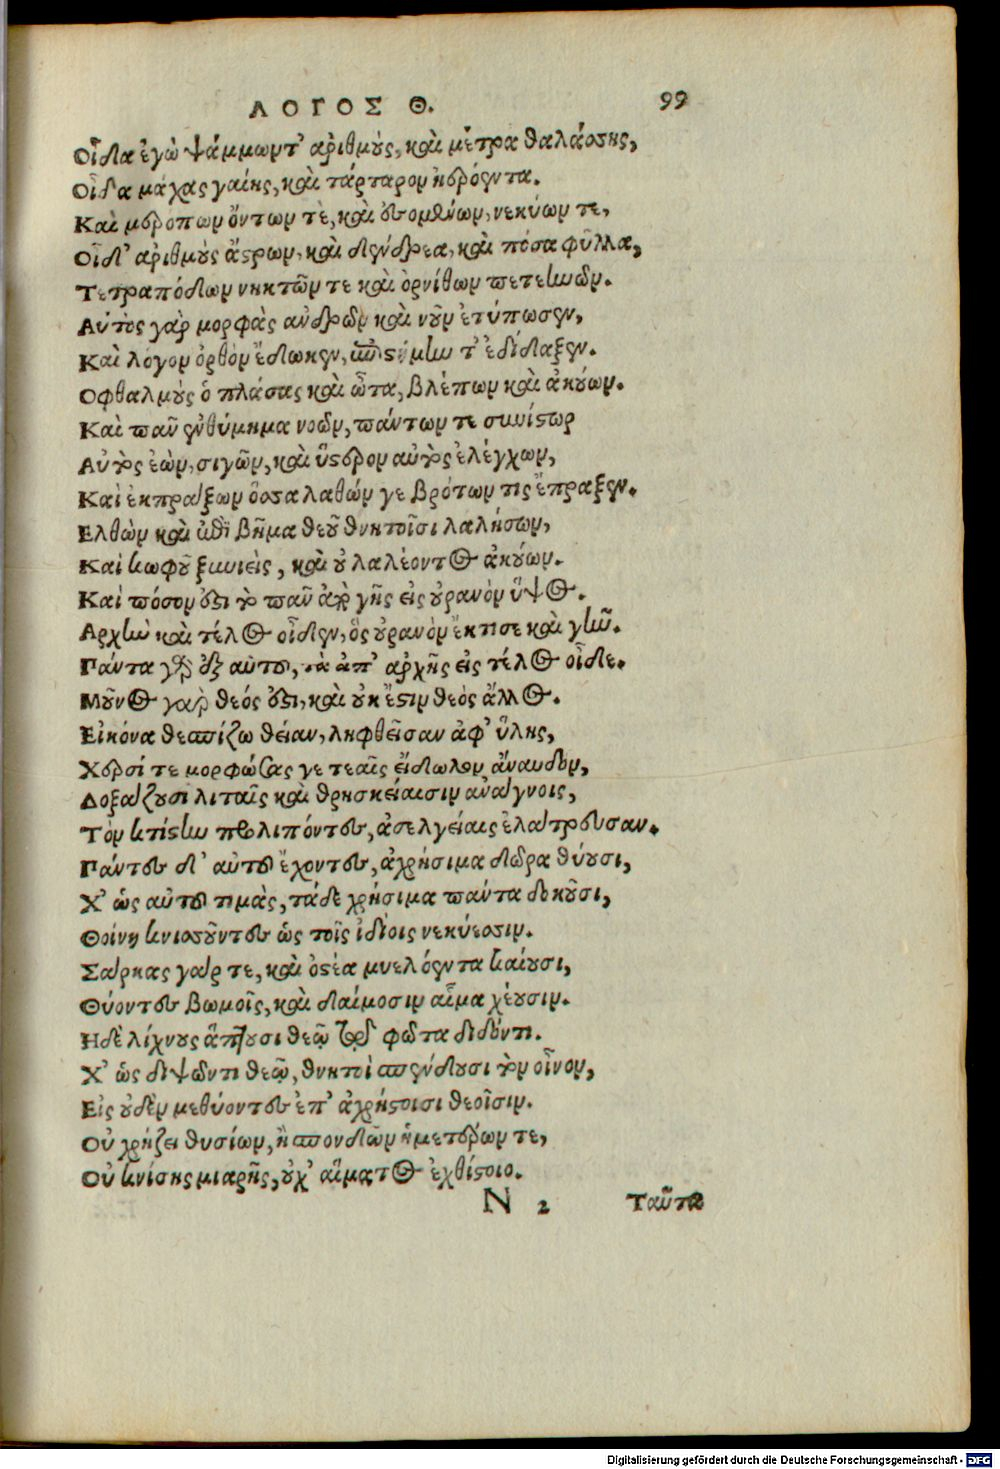 ΛΟΓΟΣ Θ. 99
Οἶδα ἐγὼ ψάμμων τ' ἀριθμοὺς, καὶ μέτρα θαλάσσης,
Οἶδα μάχας γαίης, καὶ τάρταρον ἠερόεντα.
Καὶ μερόπων ὄντων τὲ, καὶ ἐσομένων, νεκύων τε,
Οἶδ' ἀριθμοὺς ἄστρων, καὶ δένδρεα, καὶ πόσα φῦλλα,
Τετραπόδων νηκτῶν τε καὶ ὀρνίθων πετεηνῶν.
Αὐτὸς γὰρ μορφὰς ἀνδρῶν καὶ νοῦν ἐτύπωσεν,
Καὶ λόγον ὀρθὸν ἔδωκεν, ἐπιστήμην τ' ἐδίδαξεν.
Οφθαλμοὺς ὁ πλάσας καὶ ὦτα, βλέπων καὶ ἀκούων.
Καὶ πᾶν ἐνθύμημα νοῶν, πάντων τε συνίστωρ
Αὐτὸς ἐὼν, σιγῶν, καὶ ὕστερον αὐτὸς ἐλέγχων,
Καὶ ἐκπράξων ὅσσα λαθών γε βρότων τις ἔπραξεν.
Ελθὼν καὶ ἐπὶ βῆμα θεοῦ θνητοῖσι λαλήσων,
Καὶ κωφοῦ ξυνιεὶς, καὶ οὐ λαλέοντος ἀκούων.
Καὶ πόσον ἐστι τὸ πᾶν ἀπὸ γῆς εἰς οὐρανὸν ὕψος.
Αρχὴν καὶ τέλος οἶδεν, ὃς οὐρανὸν ἔκτισε καὶ γῆν.
Πάντα γὰρ ἐξ αὐτοῦ, τὰ ἀπ' ἀρχῆς εἰς τέλος οἶδε.
Μοῦνος γὰρ θεός ἐστι, καὶ οὐκ ἔστιν θεὸς ἄλλος.
Εἰκόνα θεσπίζω θείαν, ληφθεῖσαν ἀφ' ὕλης,
Χερσί τε μορφώσας γε τεαῖς εἴδωλον ἄναυδον,
Δοξάζουσι λιταῖς καὶ θρησκείαισιν ἀνάγνοις,
Τὸν κτίστην προλιπόντες, ἀσελγείαις ἐλάτρευσαν.
Πάντες δ' αὐτοῦ ἔχοντες, ἀχρήσιμα δῶρα θύουσι,
Χ' ὡς αὐτοῦ τιμὰς, τάδε χρήσιμα πάντα δοκοῦσι,
Θοίνῃ κνισσοῦντες ὡς τοῖς ἰδίοις νεκύεσσιν.
Σάρκας γάρ τε, καὶ ὀστέα μυελόεντα καίουσι,
Θύοντες βωμοῖς, καὶ δαίμοσιν αἷμα χέουσιν.
Ηδὲ λίχνους ἅπτουσι θεῷ τῷ φῶτα διδόντι.
Χ' ὡς διψῶντι θεῷ, θνητοὶ σπένδουσι τὸν οἶνον,
Εἰς οὐδὲν μεθύοντες ἐπ' ἀχρήστοισι θεοῖσιν.
Οὐ χρῄζει θυσίων, ἢ σπονδῶν ἡμετέρων τε,
Οὐ κνίσης μιαρῆς, οὐχ' αἵματος ἐχθίστοιο.
N 2 Ταῦτα
Digitalisierung gefördert durch die Deutsche Forschungsgemeinschaft - DFG